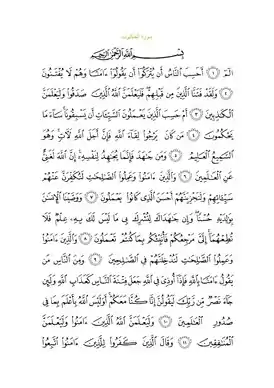 سورة العنكبوت
بِسْمِ اللَّهِ الرَّحْمَٰنِ الرَّحِيمِ
الٓمٓ ١ أَحَسِبَ النَّاسُ أَن يُتْرَكُوٓا۟ أَن يَقُولُوٓا۟ ءَامَنَّا وَهُمْ لَا يُفْتَنُونَ
٢ وَلَقَدْ فَتَنَّا الَّذِينَ مِن قَبْلِهِمْ ۖ فَلَيَعْلَمَنَّ اللَّهُ الَّذِينَ صَدَقُوا۟ وَلَيَعْلَمَنَّ
الْكَٰذِبِينَ ٣ أَمْ حَسِبَ الَّذِينَ يَعْمَلُونَ السَّيِّـَٔاتِ أَن يَسْبِقُونَا ۚ سَآءَ مَا
يَحْكُمُونَ ٤ مَن كَانَ يَرْجُوا۟ لِقَآءَ اللَّهِ فَإِنَّ أَجَلَ اللَّهِ لَـَٔاتٍ ۚ وَهُوَ
السَّمِيعُ الْعَلِيمُ ٥ وَمَن جَٰهَدَ فَإِنَّمَا يُجَٰهِدُ لِنَفْسِهِۦٓ ۚ إِنَّ اللَّهَ لَغَنِىٌّ
عَنِ الْعَٰلَمِينَ ٦ وَالَّذِينَ ءَامَنُوا۟ وَعَمِلُوا۟ الصَّٰلِحَٰتِ لَنُكَفِّرَنَّ عَنْهُمْ
سَيِّـَٔاتِهِمْ وَلَنَجْزِيَنَّهُمْ أَحْسَنَ الَّذِى كَانُوا۟ يَعْمَلُونَ ٧ وَوَصَّيْنَا الْإِنسَٰنَ
بِوَٰلِدَيْهِ حُسْنًا ۖ وَإِن جَٰهَدَاكَ لِتُشْرِكَ بِى مَا لَيْسَ لَكَ بِهِۦ عِلْمٌ فَلَا
تُطِعْهُمَآ ۚ إِلَىَّ مَرْجِعُكُمْ فَأُنَبِّئُكُم بِمَا كُنتُمْ تَعْمَلُونَ ٨ وَالَّذِينَ ءَامَنُوا۟
وَعَمِلُوا۟ الصَّٰلِحَٰتِ لَنُدْخِلَنَّهُمْ فِى الصَّٰلِحِينَ ٩ وَمِنَ النَّاسِ مَن
يَقُولُ ءَامَنَّا بِاللَّهِ فَإِذَآ أُوذِىَ فِى اللَّهِ جَعَلَ فِتْنَةَ النَّاسِ كَعَذَابِ اللَّهِ وَلَئِن
جَآءَ نَصْرٌ مِّن رَّبِّكَ لَيَقُولُنَّ إِنَّا كُنَّا مَعَكُمْ ۚ أَوَلَيْسَ اللَّهُ بِأَعْلَمَ بِمَا فِى
صُدُورِ الْعَٰلَمِينَ ١٠ وَلَيَعْلَمَنَّ اللَّهُ الَّذِينَ ءَامَنُوا۟ وَلَيَعْلَمَنَّ
الْمُنَٰفِقِينَ ١١ وَقَالَ الَّذِينَ كَفَرُوا۟ لِلَّذِينَ ءَامَنُوا۟ اتَّبِعُوا۟